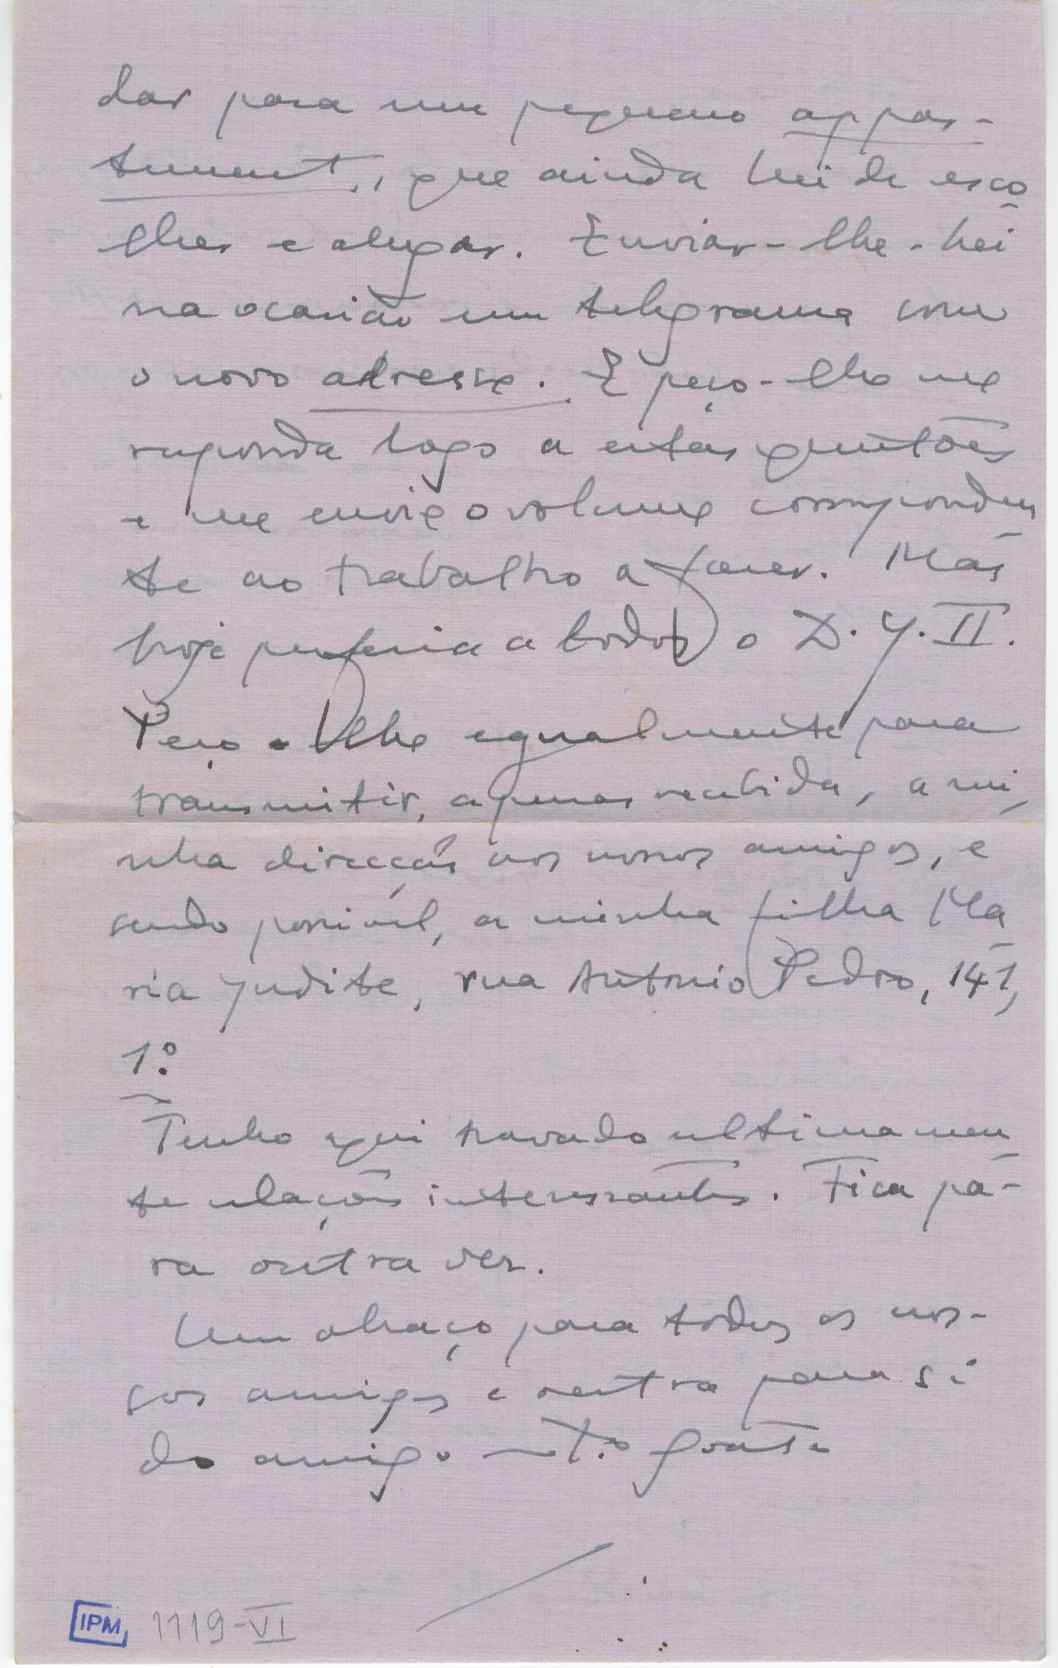 dar para um pequeno appar-
tement, que ainda hei de esco
lher e alugar. Enviar-lhe-hei
na ocasião um telegrama com
o novo adresse. E peço-lhe me
responda logo a estas questões
e me envie o volume corresponden
te ao trabalho a fazer. Mas
hoje preferia a todos o D. J. II.
Peço-lhe egualmente para
transmitir, apenas recebida, a mi
nha direcção aos nossos amigos, e
sendo possivel, a minha filha Ma
ria Judite, rua Antonio Pedro, 141,
1.º
Tenho aqui travado ultimamen
te relações interessantes. Fica pa-
ra outra vez.
Um abraço para todos os nos-
sos amigos e outro para si
do amigo mto grato
IPM 1119-VI